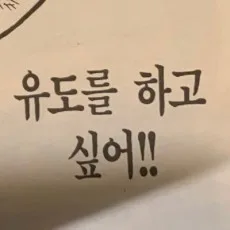 유도를 하고
싶어!!